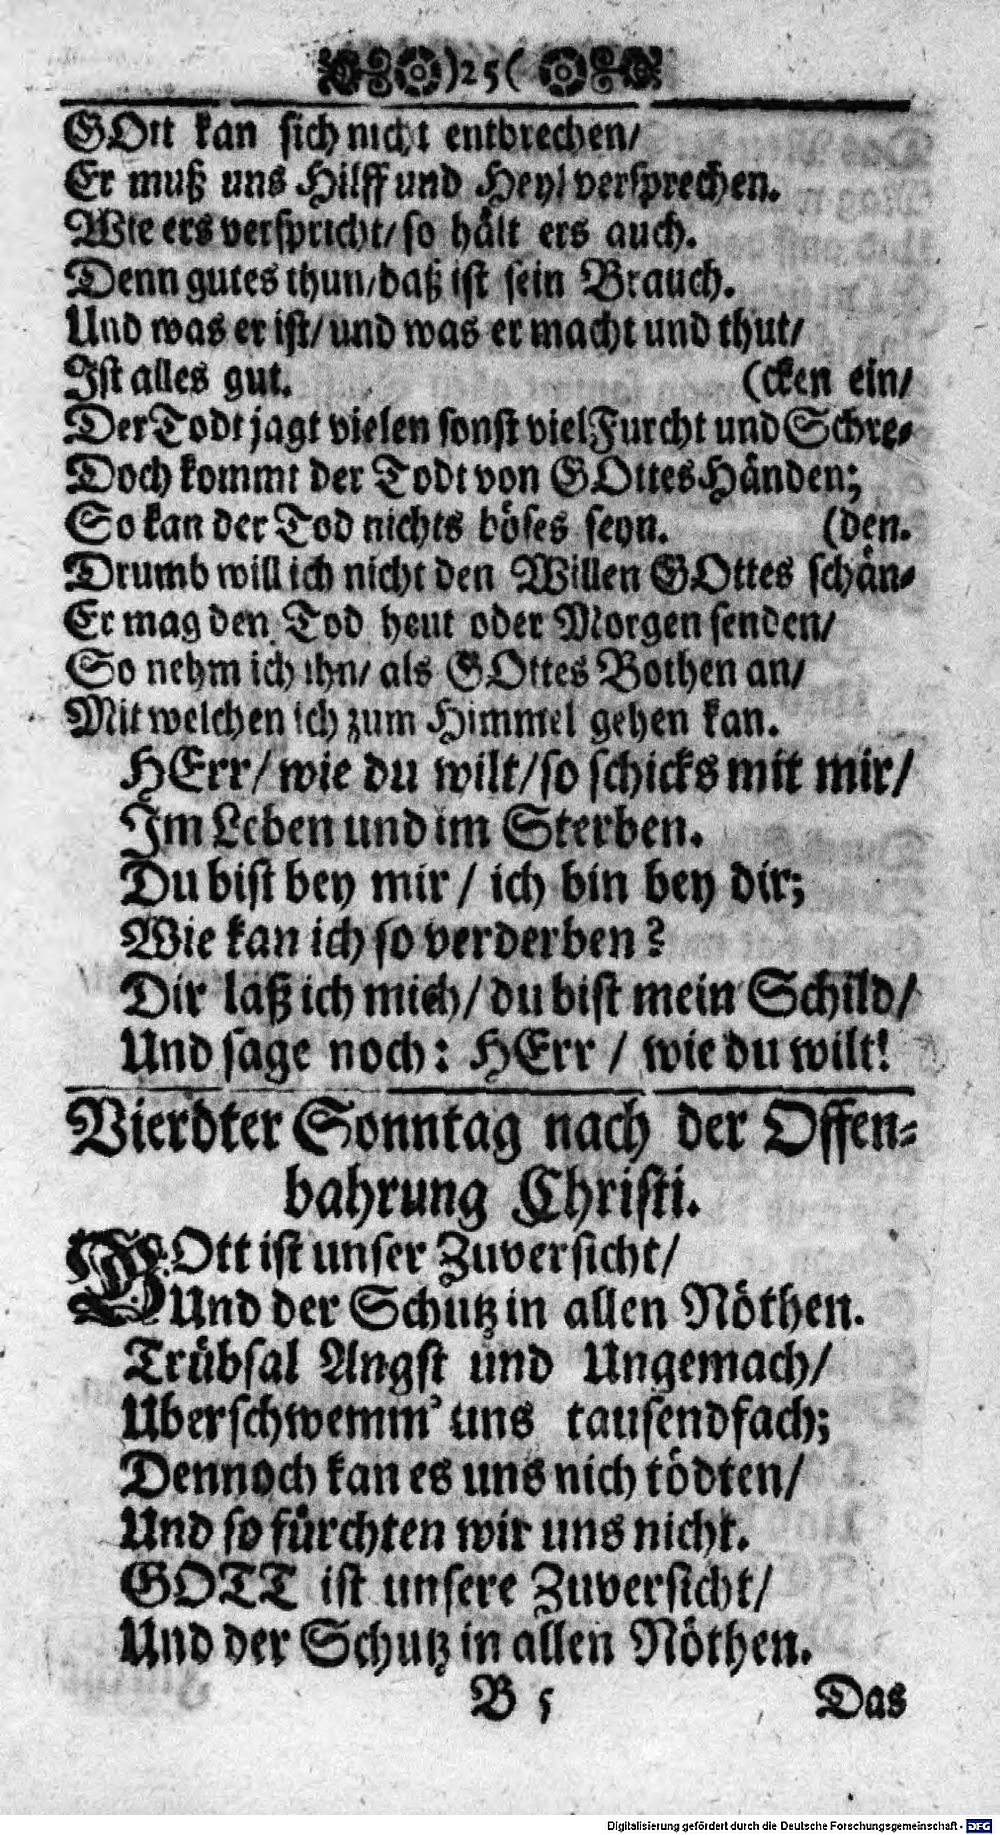 )25(
GOtt kan sich nicht entbrechen/
Er muß uns Hilff und Heyl versprechen.
Wie ers verspricht/ so hält ers auch.
Denn gutes thun/ daß ist sein Brauch.
Und was er ist/ und was er macht und thut/
Ist alles gut. (cken ein/
Der Todt jagt vielen sonst viel Furcht und Schre-
Doch kommt der Todt von GOttes Händen;
So kan der Tod nichts böses seyn. (den.
Drumb will ich nicht den Willen GOttes schän-
Er mag den Tod heut oder Morgen senden/
So nehm ich ihn/ als GOttes Bothen an/
Mit welchen ich zum Himmel gehen kan.
HErr/ wie du wilt/ so schicks mit mir/
Im Leben und im Sterben.
Du bist bey mir / ich bin bey dir;
Wie kan ich so verderben?
Dir laß ich mich/ du bist mein Schild/
Und sage noch: HErr / wie du wilt!
Vierdter Sonntag nach der Offen-
bahrung Christi.
GOtt ist unser Zuversicht/
Und der Schutz in allen Nöthen.
Trübsal Angst und Ungemach/
Uberschwemm' uns tausendfach;
Dennoch kan es uns nich tödten/
Und so fürchten wir uns nicht.
GOTT ist unsere Zuversicht/
Und der Schutz in allen Nöthen.
B 5 Das
Digitalisierung gefördert durch die Deutsche Forschungsgemeinschaft - DFG